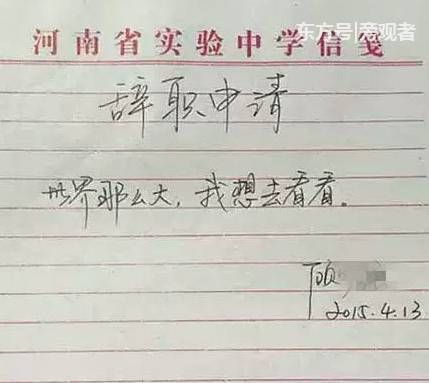 东方号|旁观者
河南省实验中学信笺
辞职申请
世界那么大，我想去看看。
顾
2015.4.13